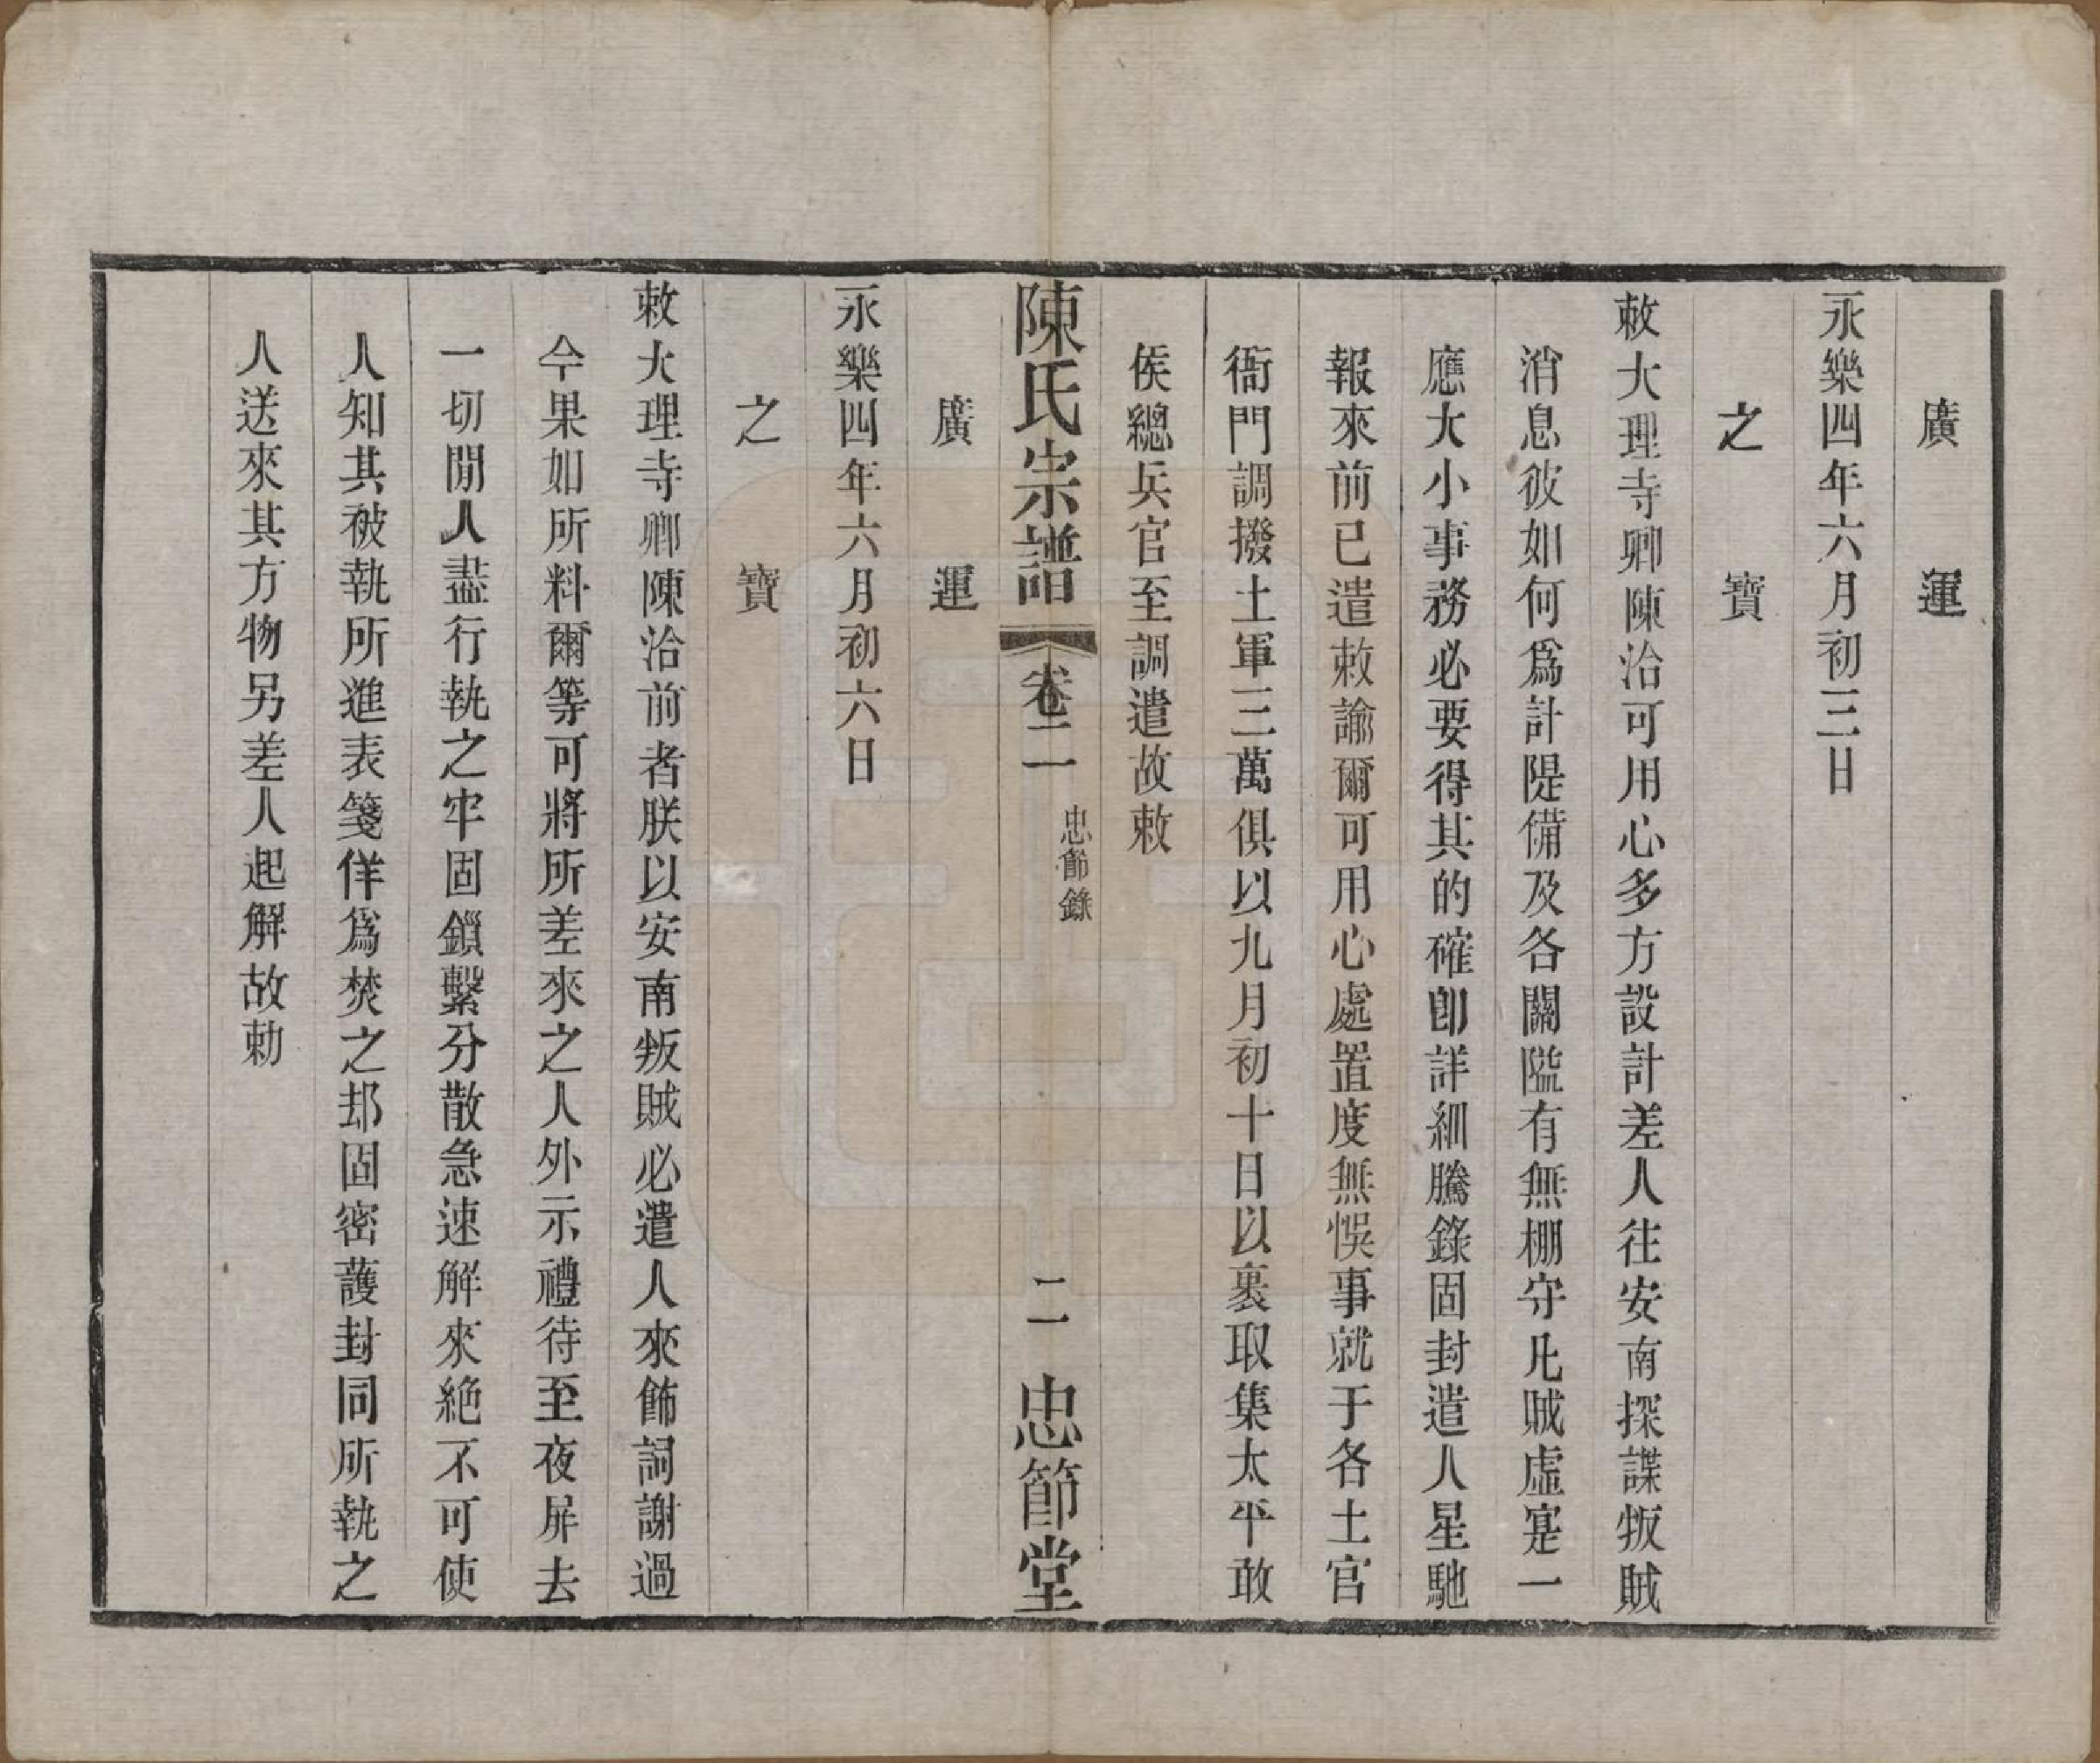 廣運
永樂四年六月初三日
之寶
敕大理寺卿陳洽可用心多方設計差人往安南探諜叛賊
消息彼如何爲計隄備及各關隘有無棚守凡賊虛寔一
應大小事務必要得其的確卽詳細騰錄固封遣人星馳
報來前已遣敕諭爾可用心處置度無悞事就于各土官
衙門調撥土軍三萬俱以九月初十日以裏取集太平敢
侯總兵官至調遣故敕
陳氏宗譜 卷二 忠節錄 二 忠節堂
廣運
永樂四年六月初六日
之寶
敕大理寺卿陳洽前者朕以安南叛賊必遣人來飾詞謝過
今果如所料爾等可將所差來之人外示禮待至夜屏去
一切閒人盡行執之牢固鎖繫分散急速解來絶不可使
人知其被執所進表箋佯爲焚之却固密護封同所執之
人送來其方物另差人起解故勅